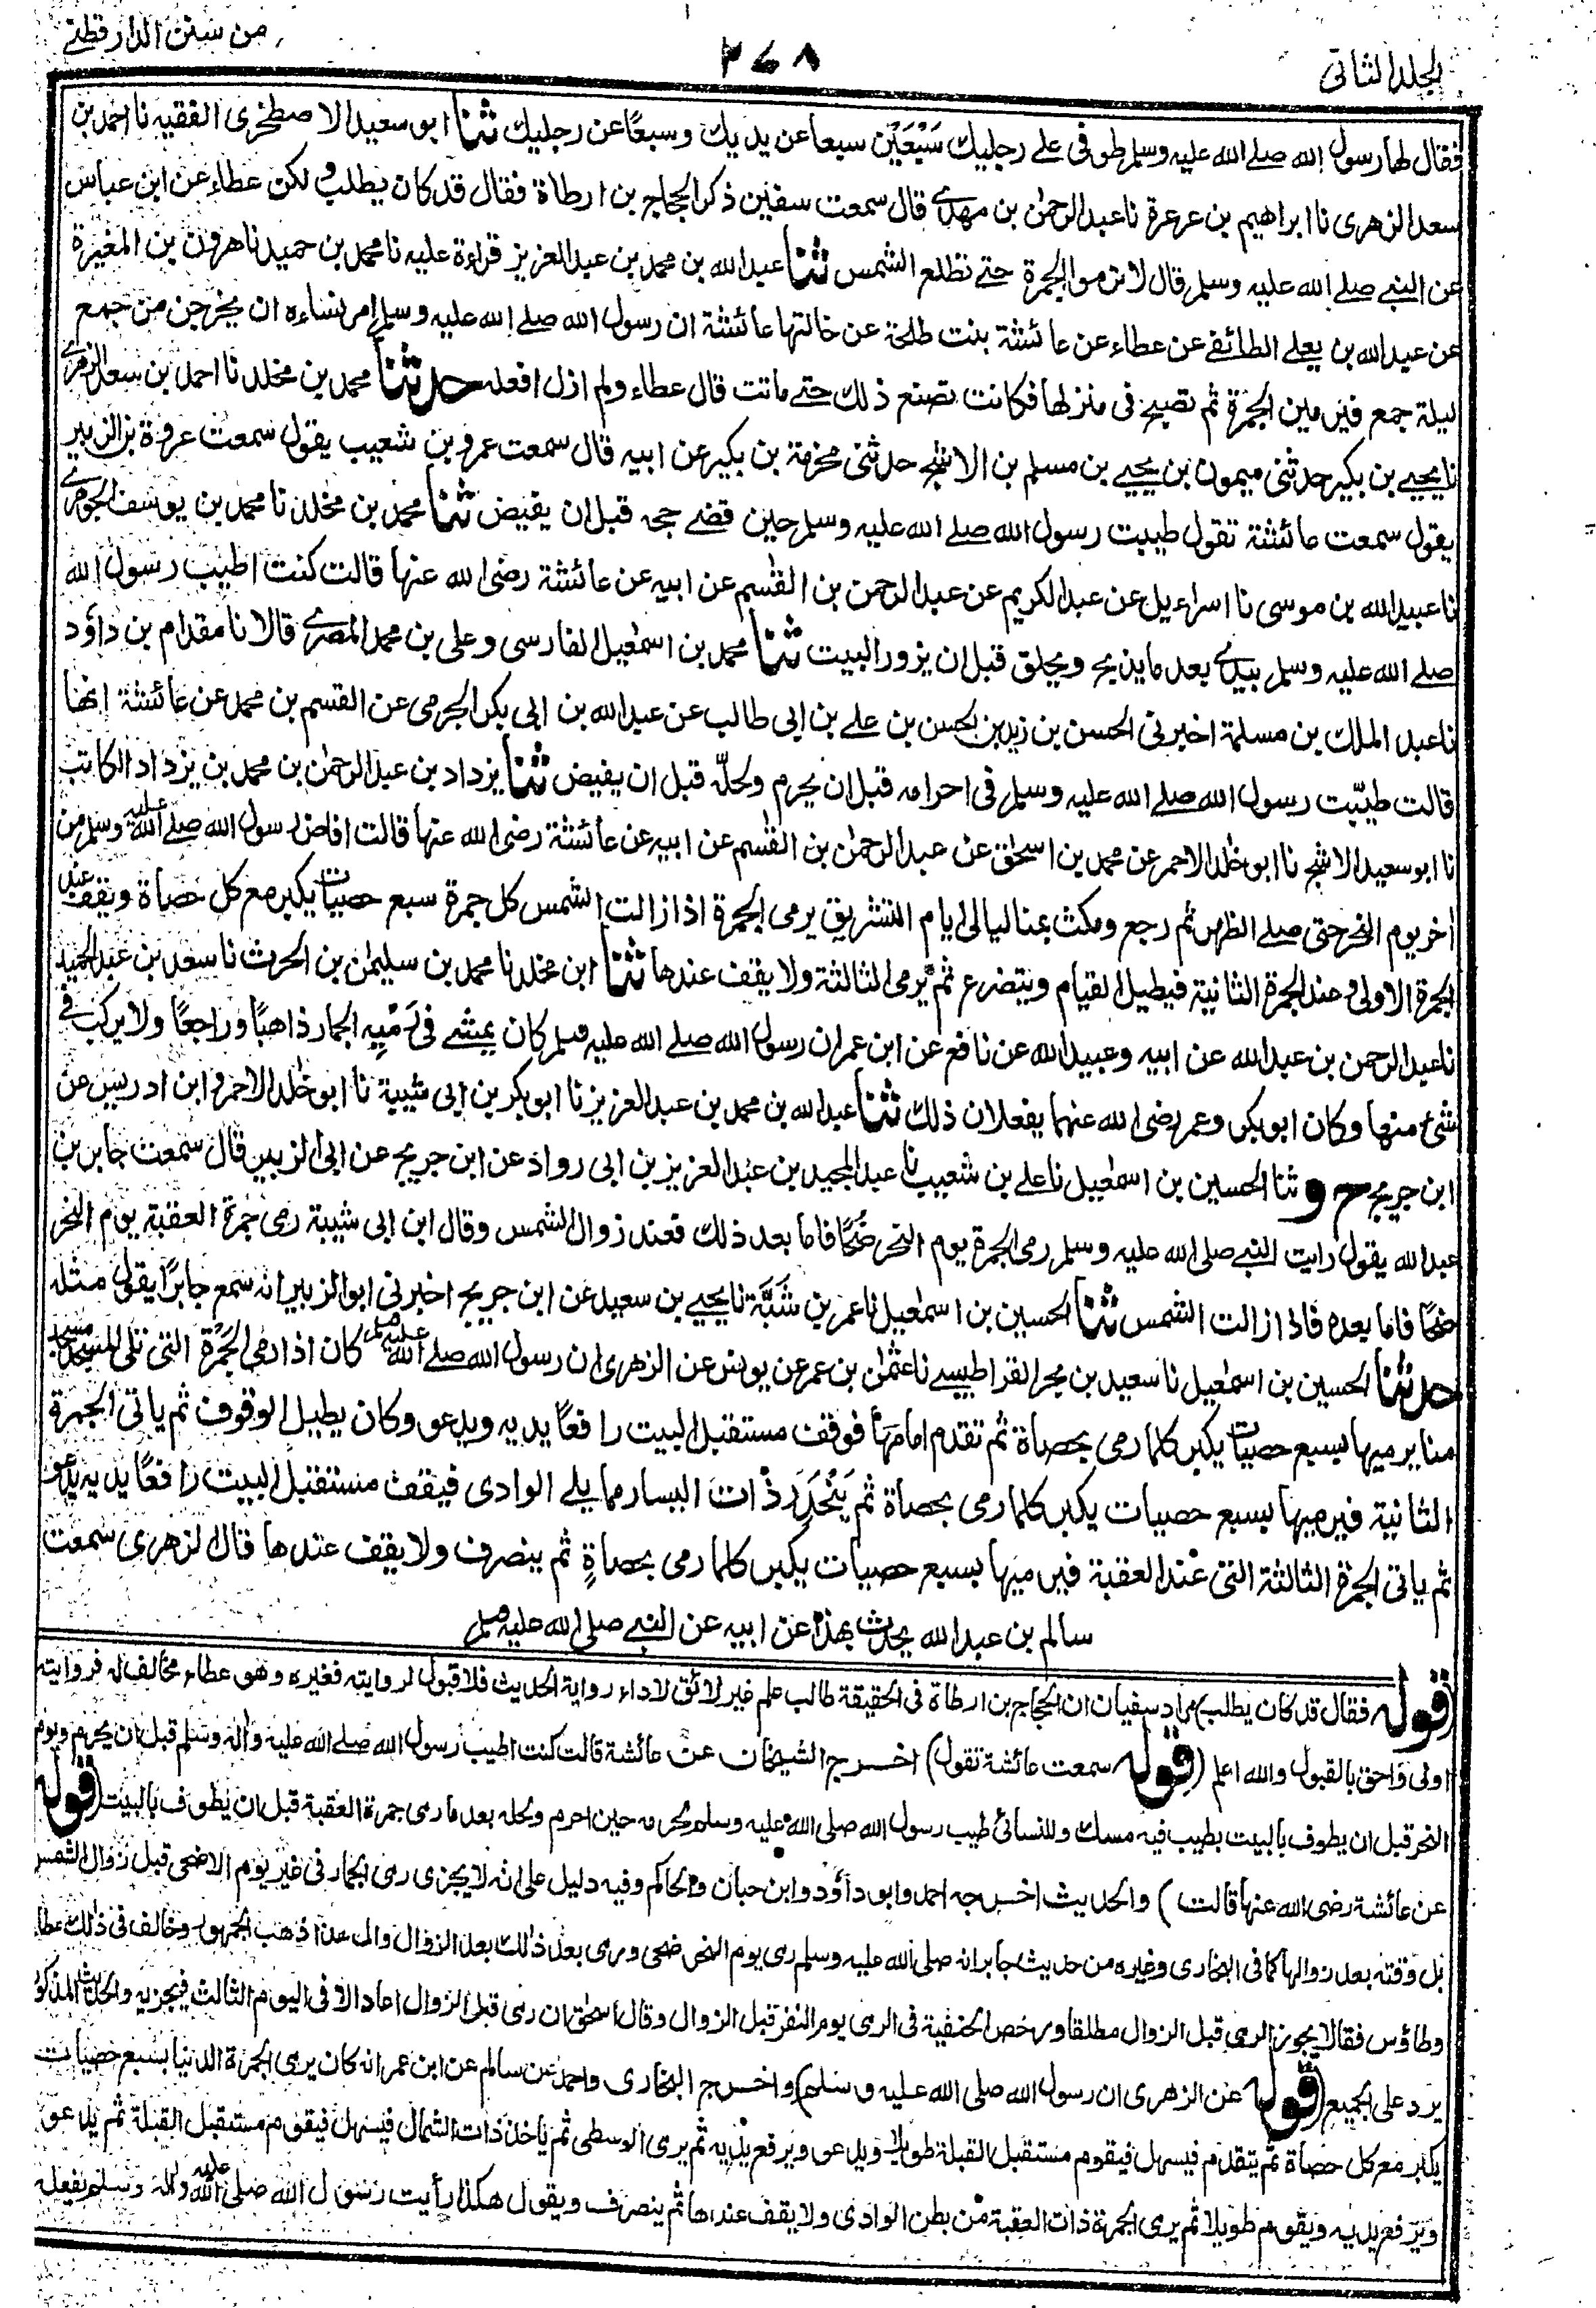 الجلد الثانی
۲۷۸
من سنن الدارقطنے
فقال لها رسول الله صلے الله علیہ وسلم طوفی علے رجلیك سَبْعَیْن سبعا عن یدیك وسبعًا عن رجلیك ثنا ابو سعید الاصطخری الفقیہ نا احمد بن
سعد الزهری نا ابراهیم بن عرعرة نا عبد الرحمٰن بن مهدے قال سمعت سفیٰن ذکر الحجاج بن ارطاة فقال قد کان یطلب ولکن عطاء عن ابن عباس
عن النبے صلے الله علیہ وسلم قال لا ترموا الجمرة حتے تطلع الشمس ثنا عبد الله بن محمد بن عبد العزیز قراءة علیہ نا محمد بن حمید نا هرون بن المغیرة
عن عبد الله بن یعلے الطائفے عن عطاء عن عائشة بنت طلحة عن خالتها عائشة ان رسول الله صلے الله علیہ وسلم امر نساءه ان یخرجن من جمع
لیلة جمع فیرمین الجمرة ثم تصبح فی منزلها فکانت تصنع ذلك حتے ماتت قال عطاء ولم ازل افعله حدثنا محمد بن مخلد نا احمد بن سعد الزهرے
نا یحیے بن بکیر حدثنی میمون بن یحیے بن مسلم بن الاشج حدثنی مخرمة بن بکیر عن ابیه قال سمعت عمرو بن شعیب یقول سمعت عروة بن الزبیر
یقول سمعت عائشة تقول طیبت رسول الله صلے الله علیه وسلم حین قضے حجه قبل ان یفیض ثنا محمد بن مخلد نا محمد بن یوسف الجوهرے
نا عبید الله بن موسی نا اسراءیل عن عبد الکریم عن عبد الرحمن بن القٰسم عن ابیه عن عائشة رضی الله عنها قالت کنت اطیب رسول الله
صلے الله علیه وسلم بیدے بعد ما یذبح ویحلق قبل ان یزور البیت ثنا محمد بن اسمٰعیل الفارسی وعلی بن محمد المصرے قالا نا مقدام بن داؤد
نا عبد الملك بن مسلمة اخبرنی الحسن بن زید بن الحسن بن علے بن ابی طالب عن عبد الله بن ابی بکر الجرمی عن القسم بن محمد عن عائشة انها
قالت طیّبت رسول الله صلے الله علیه وسلم فی احرامه قبل ان یحرم ولحلّه قبل ان یفیض ثنا یزداد بن عبد الرحمٰن بن محمد بن یزداد الکاتب
نا ابو سعید الاشج نا ابو خٰلد الاحمر عن محمد بن اسحٰق عن عبد الرحمٰن بن القٰسم عن ابیه عن عائشة رضی الله عنها قالت افاض رسول الله صلے الله علیه وسلم من
اٰخر یوم النحر حتی صلے الظهر ثم رجع ومکث بمنا لیالی ایام التشریق یرمی الجمرة اذا زالت الشمس کل جمرة سبع حصیات یکبر مع کل حصاة ویقف عند
الجمرة الاولی وعند الجمرة الثانیة فیطیل القیام ویتضرع ثم یرمی الثالثة ولا یقف عندها ثنا ابن مخلد نا محمد بن سلیمٰن بن الحرث نا سعد بن عبد الحمید
نا عبد الرحمن بن عبد الله عن ابیه وعبید الله عن نافع عن ابن عمر ان رسول الله صلے الله علیه وسلم کان یمشے فی رَمْیِه الجمار ذاهبًا وراجعًا ولا یرکب فے
شئ منها وکان ابوبکر وعمر رضی الله عنهما یفعلان ذلك ثنا عبد الله بن محمد بن عبد العزیز نا ابوبکر بن ابی شیبة نا ابو خٰلد الاحمر وابن ادریس عن
ابن جریج ح و ثنا الحسین بن اسمٰعیل نا علے بن شعیب نا عبد المجید بن عبد العزیز بن ابی رواد عن ابن جریج عن ابی الزبیر قال سمعت جابر بن
عبد الله یقول رایت النبے صلی الله علیه وسلم رمی الجمرة یوم النحر ضُحًا فاما بعد ذلك فعند زوال الشمس وقال ابن ابی شیبة رمی جمرة العقبة یوم النحر
ضحًا فاما بعده فاذا زالت الشمس ثنا الحسین بن اسمٰعیل نا عمر بن شَبَّة نا یحیے بن سعید عن ابن جریج اخبرنی ابو الزبیر انه سمع جابرًا یقول مثله
حدثنا الحسین بن اسمٰعیل نا سعید بن بحر القراطیسے نا عثمٰن بن عمر عن یونس عن الزهری ان رسول الله صلے الله علیه وسلم کان اذا رمی الجَمْرة التی تلی المسجد مسجد
منا یرمیها بسبع حصیات یکبر کلما رمی بحصاة ثم تقدم امامَهَا فوقف مستقبل البیت رافعًا یدیه ویدعو وکان یطیل الوقوف ثم یاتی الجمرة
الثانیة فیرمیها بسبع حصیات یکبر کلما رمی بحصاة ثم یَنْحَدِر ذات الیسار مما یلے الوادی فیقف مستقبل البیت رافعًا یدیه یدعو
ثم یاتی الجمرة الثالثة التی عند العقبة فیرمیها بسبع حصیات یکبر کلما رمی بحصاةٍ ثم ینصرف ولا یقف عندها قال الزهری سمعت
سالم بن عبد الله یحدث بهذا عن ابیه عن النبے صلی الله علیه وسلم
(قوله فقال قد کان یطلب) مراد سفیان ان الحجاج بن ارطاة فی الحقیقة طالب علم غیر لائق لاداء روایة الحدیث فلا قبول لروایته فغیره وهو عطاء مخالف له فروایته
اولی واحق بالقبول والله اعلم (قوله سمعت عائشة تقول) اخرج الشیخان عن عائشة قالت کنت اطیب رسول الله صلے الله علیه واٰله وسلم قبل ان یحرم ویوم
النحر قبل ان یطوف بالبیت بطیب فیه مسك وللنسائی طیبت رسول الله صلی الله علیه وسلم لحرمه حین احرم ولحله بعد ما رمی جمرة العقبة قبل ان یطوف بالبیت (قوله
عن عائشة رضی الله عنها قالت) والحدیث اخرجه احمد وابو داؤد وابن حبان والحاکم وفیه دلیل علی انه لا یجزی رمی الجمار فی غیر یوم الاضحی قبل زوال الشمس
بل وقته بعد زوالها کما فی البخاری وغیره من حدیث جابر انه صلی الله علیه وسلم رمی یوم النحر ضحی ورمی بعد ذلك بعد الزوال والی هذا ذهب الجمهور وخالف فی ذلك عطاء
وطاؤس فقالا یجوز الرمی قبل الزوال مطلقا ورخص الحنفیة فی الرمی یوم النفر قبل الزوال وقال اسحٰق ان رمی قبل الزوال اعاد الا فی الیوم الثالث فیجزیه والحدیث المذکور
یرد علی الجمیع (قوله عن الزهری ان رسول الله صلی الله علیه وسلم) واخرج البخاری واحمد عن سالم عن ابن عمر انه کان یرمی الجمرة الدنیا بسبع حصیات
یکبر مع کل حصاة ثم یتقدم فیسهل فیقوم مستقبل القبلة طویلا ویدعو ویرفع یدیه ثم یرمی الوسطی ثم یاخذ ذات الشمال فیسهل فیقوم مستقبل القبلة ثم یدعو
ویرفع یدیه ویقوم طویلا ثم یرمی الجمرة ذات العقبة من بطن الوادی ولا یقف عندها ثم ینصرف ویقول هکذا رأیت رسول الله صلی الله علیه واله وسلم یفعله